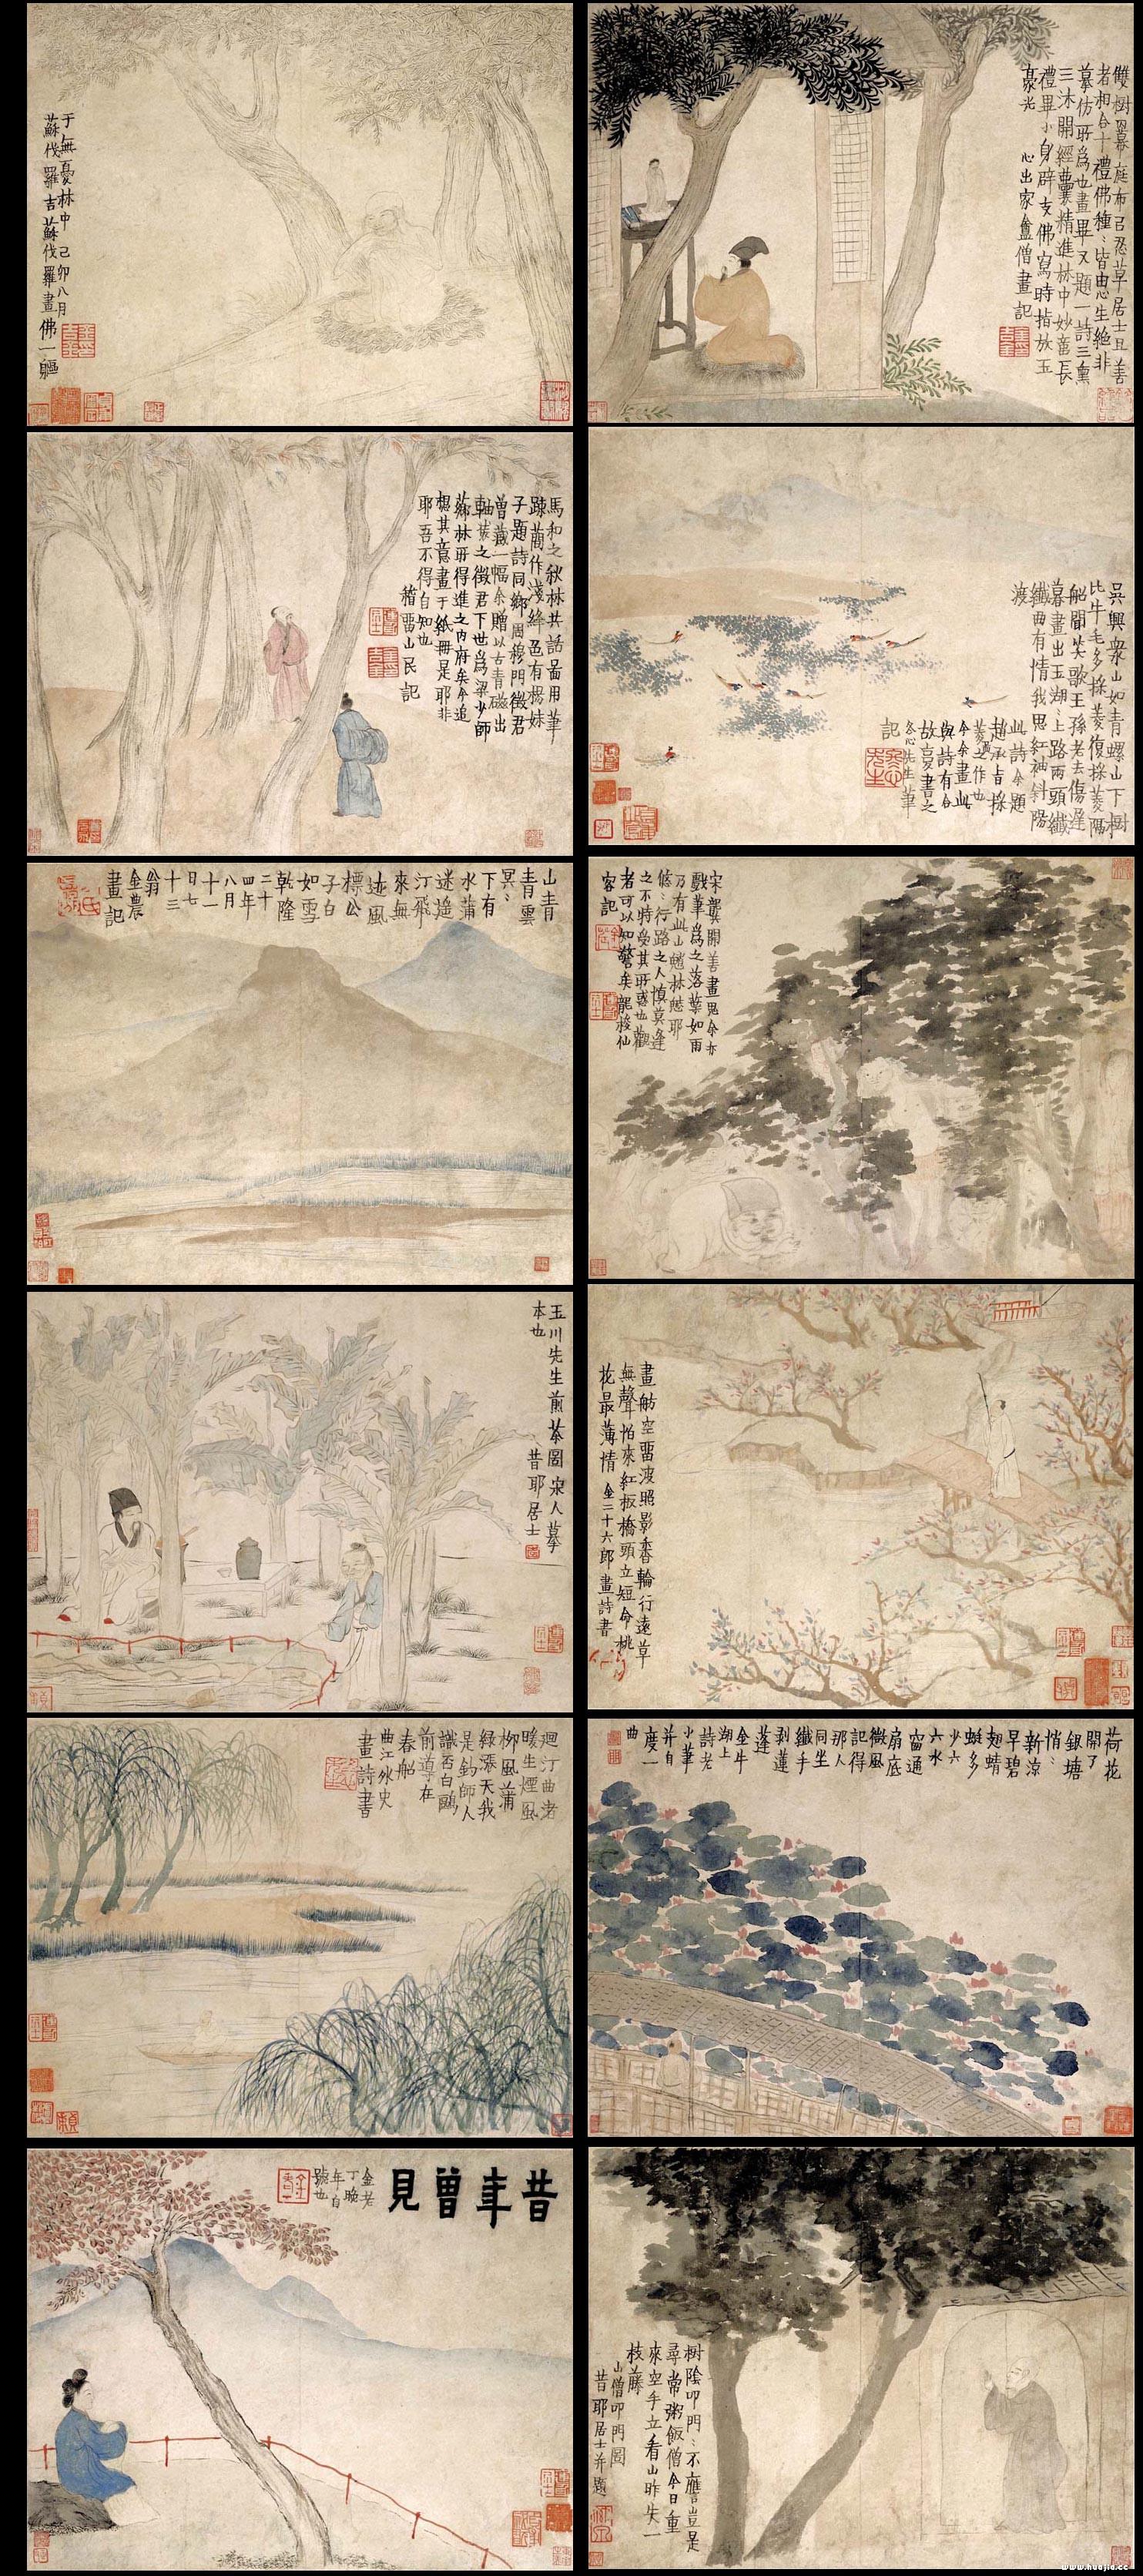 于無憂林中己卯八月
蘇伐羅吉蘇伐羅畫佛一軀
雙樹幕庭布召忍草居士丑善
者相合十禮佛種〻皆由忍生絕非
摹仿所為也畫畢又題一詩三熏
三沐開經囊精進林中妙意長
禮畢小身辟支佛寫時指放玉
豪光
心出家盦僧畫記
馬和之秋林共話圖用筆
疎簡作淺絳色有楊妹
子題詩同鄉周穆門徵君
曾藏一幅余贈以古青磁出
軸裝之徵君下世為梁少師
薌林所得進之內府矣今追
想其意畫于紙冊是耶非
耶吾不得自知也
稽留山民記
吳興眾山如青螺山下樹
比牛毛多採菱復採菱隔
船聞笑歌王孫老去傷遲
暮畫出玉湖〻上路兩頭纖
纖曲有情我思紅袖斜陽
渡
此詩余題
趙承旨採
菱圖之作也
今余畫此
與詩有合
故爰書之
冬心先生筆
記
山青
青雲
冥〻
下有
水蒲
迷遙
汀飛
來無
迹風
標公
子白
如雪
乾隆
二十
四年
八月
十一
日七
十三
翁
金農
畫記
宋龔開善畫鬼余亦
戲筆為之落葉如雨
乃有此山魈林魅耶
悠〻行路之人慎莫逢
之不特受其所惑也觀
者可以知警矣龍梭仙
客記
玉川先生煎茶圖宋人摹
本也
昔耶居士
畫舫空留波照影香輪行遠草
無聲怕來紅板橋頭立短命桃
花最薄情
金二十六郎畫詩書
迴汀曲渚
暖生煙風
柳風蒲
綠漲天我
是釣師人
識否白鷗
前導在
春船
曲江外史
畫詩書
荷花
開了
銀塘
悄〻
新涼
早碧
翅蜻
蜓多
少六
六水
窗通
扇底
微風
記得
那人
同坐
纖手
剝蓮
蓬
金牛
湖上
詩老
小筆
并自
度一
曲
昔年曾見
金老
丁晚
年自
號也
樹陰叩門〻不譍豈是
尋常粥飯僧今日重
來空手立看山昨失一
枝藤
山僧叩門圖
昔耶居士并題
www.huajia.cc